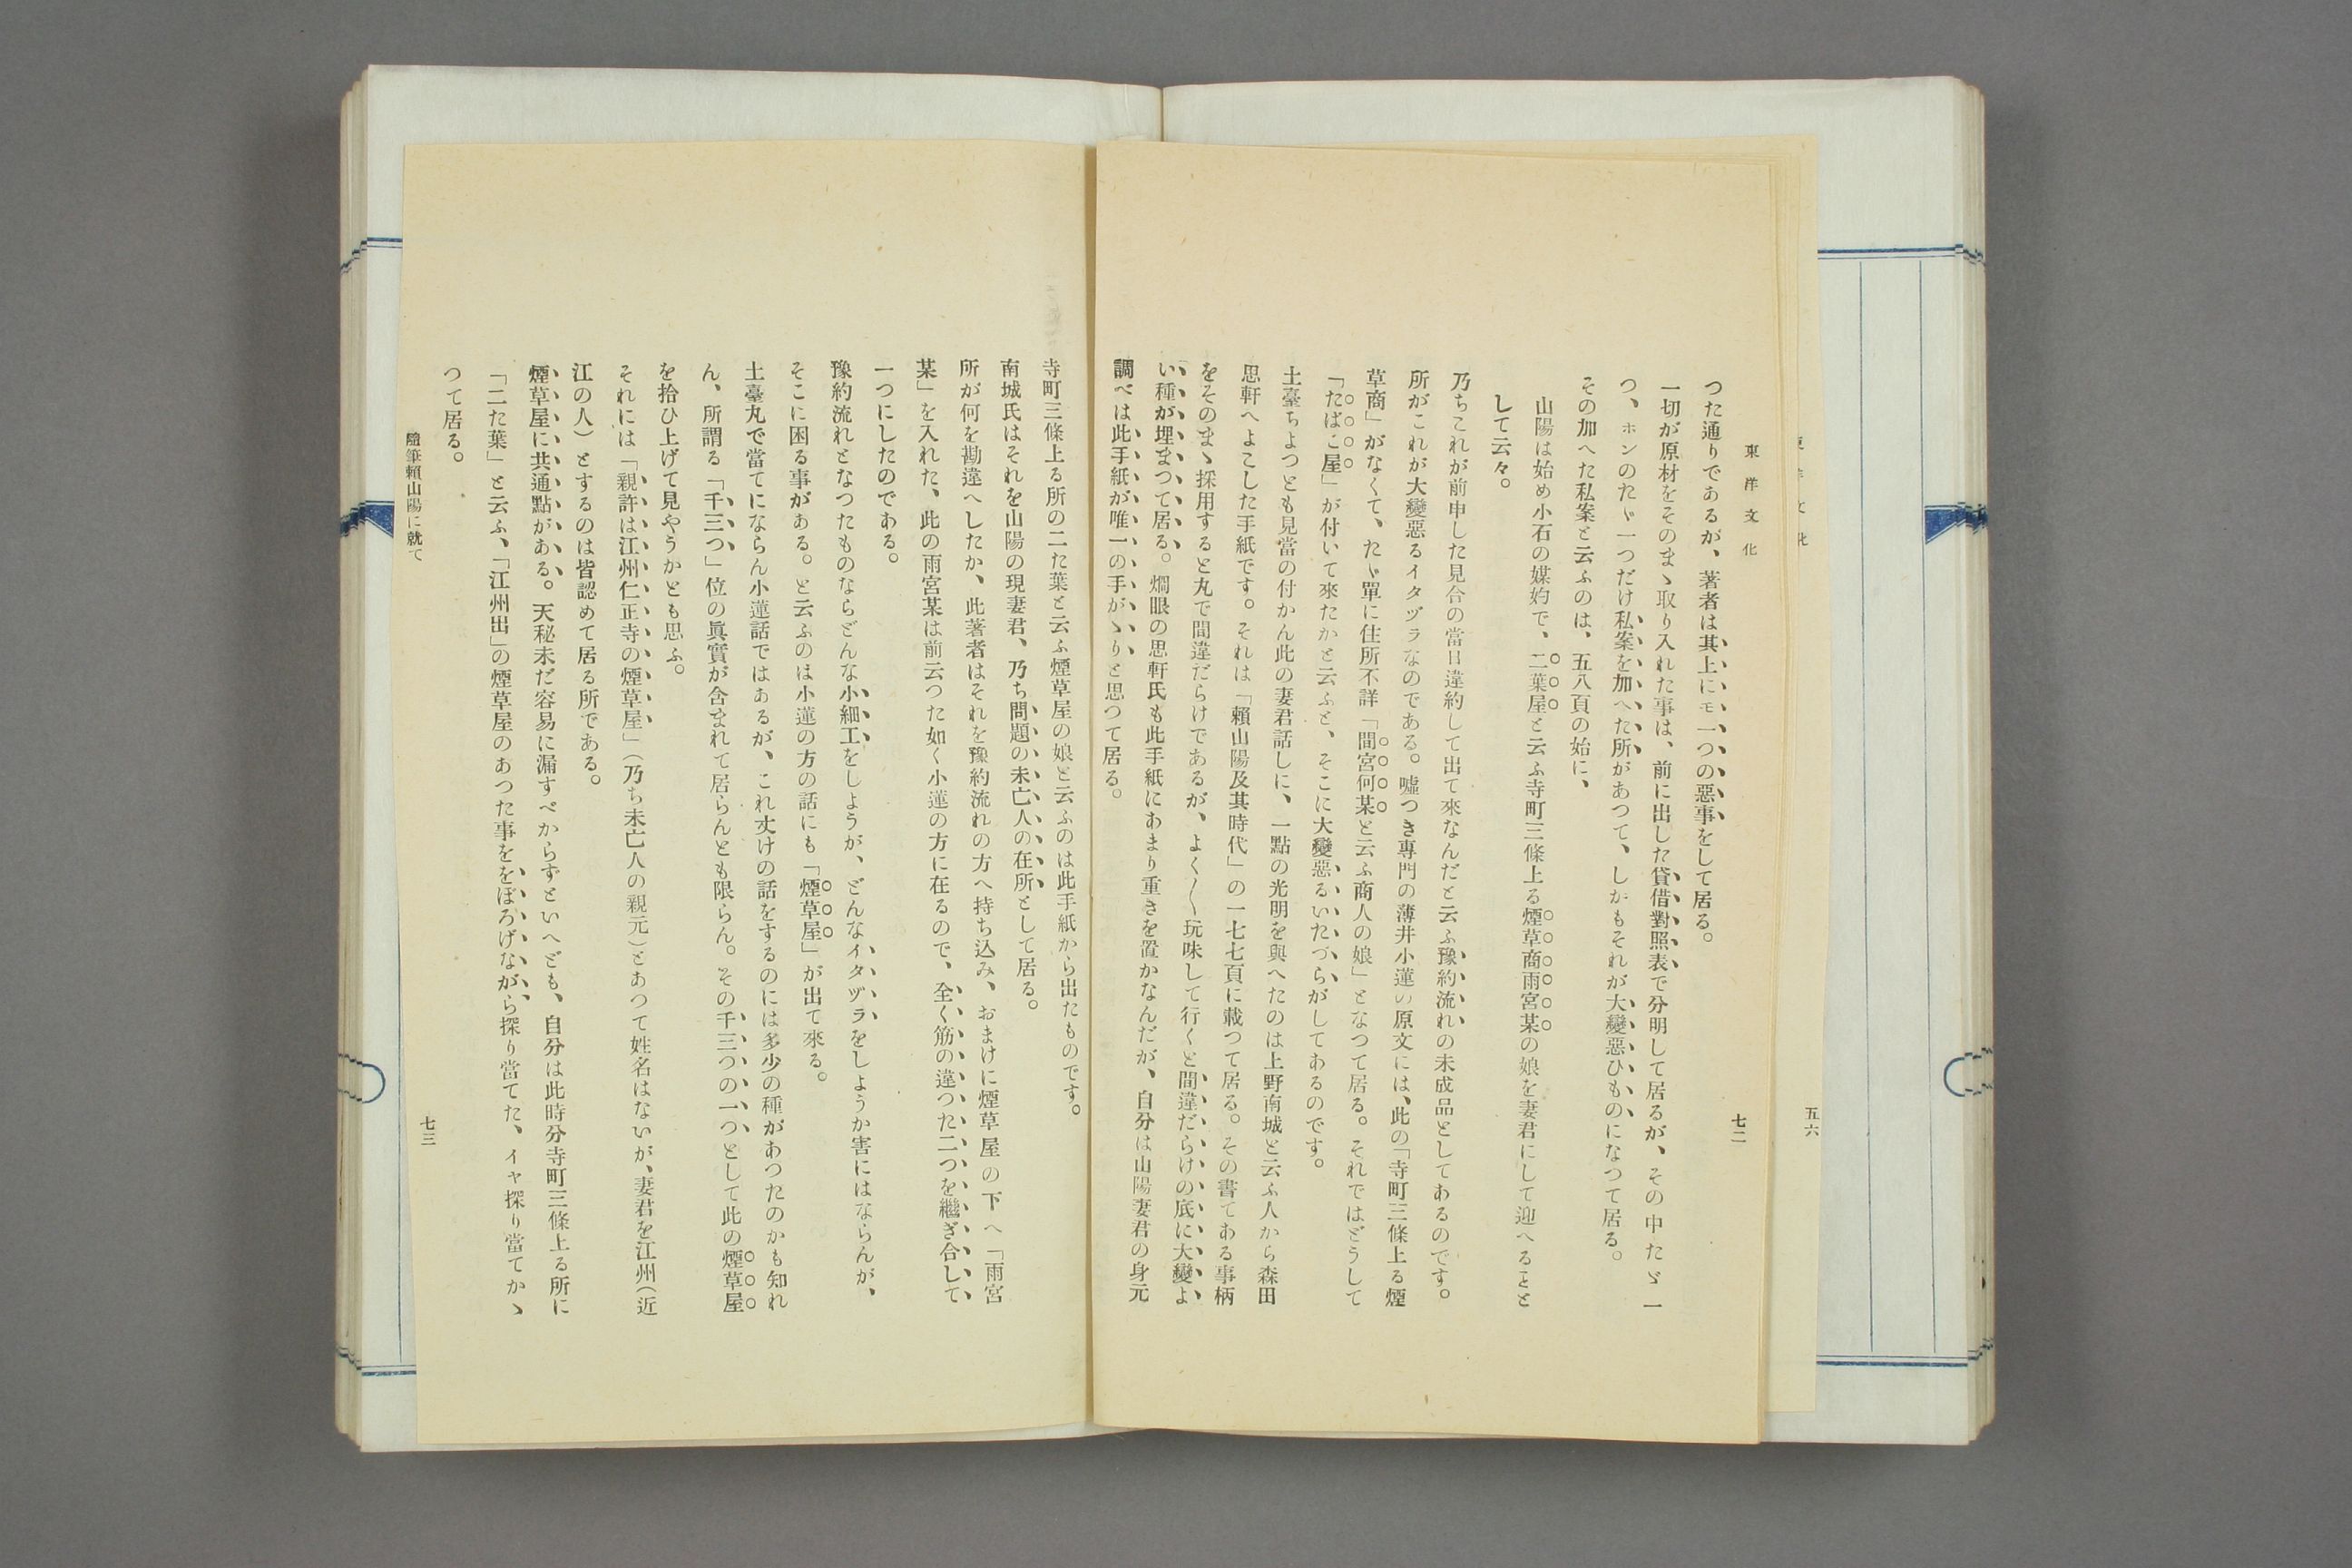 東洋文化
七二
五六
つた通りであるが、著者は其上にモ一つの惡事をして居る。
一切が原材をそのまゝ取り入れた事は、前に出した貸借對照表で分明して居るが、その中たゞ一
つ、ホンのたゞ一つだけ私案を加へた所があつて、しかもそれが大變惡ひものになつて居る。
その加へた私案と云ふのは、五八頁の始に、
山陽は始め小石の媒妁で、二葉屋と云ふ寺町三條上る煙草商雨宮某の娘を妻君にして迎へることと
して云々。
乃ちこれが前申した見合の當日違約して出て來なんだと云ふ豫約流れの未成品としてあるのです。
所がこれが大變惡るイタヅラなのである。嘘つき專門の薄井小蓮の原文には、此の「寺町三條上る煙
草商」がなくて、たゞ單に住所不詳「間宮何某と云ふ商人の娘」となつて居る。それではどうして
「たばこ屋」が付いて來たかと云ふと、そこに大變惡るいたづらがしてあるのです。
土臺ちよつとも見當の付かん此の妻君話しに、一點の光明を與へたのは上野南城と云ふ人から森田
思軒へよこした手紙です。それは「賴山陽及其時代」の一七七頁に載つて居る。その書てある事柄
をそのまゝ採用すると丸で間違だらけであるが、よく〱玩味して行くと間違だらけの底に大變よ
い種が埋まつて居る。烱眼の思軒氏も此手紙にあまり重きを置かなんだが、自分は山陽妻君の身元
調べは此手紙が唯一の手がゝりと思つて居る。
寺町三條上る所の二た葉と云ふ煙草屋の娘と云ふのは此手紙から出たものです。
南城氏はそれを山陽の現妻君、乃ち問題の未亡人の在所として居る。
所が何を勘違へしたか、此著者はそれを豫約流れの方へ持ち込み、おまけに煙草屋の下へ「雨宮
某」を入れた、此の雨宮某は前云つた如く小蓮の方に在るので、全く筋の違つた二つを繼ぎ合して
一つにしたのである。
豫約流れとなつたものならどんな小細工をしようが、どんなイタヅラをしようか害にはならんが、
そこに困る事がある。と云ふのは小蓮の方の話にも「煙草屋」が出て來る。
土臺丸で當てにならん小蓮話ではあるが、これ丈けの話をするのには多少の種があつたのかも知れ
ん、所謂る「千三つ」位の眞實が含まれて居らんとも限らん。その千三つの一つとして此の煙草屋
を拾ひ上げて見やうかとも思ふ。
それには「親許は江州仁正寺の煙草屋」（乃ち未亡人の親元）とあつて姓名はないが、妻君を江州（近
江の人）とするのは皆認めて居る所である。
煙草屋に共通點がある。天秘未だ容易に漏すべからずといへども、自分は此時分寺町三條上る所に
「二た葉」と云ふ、「江州出」の煙草屋のあつた事ををぼろげながら探り當てた、イヤ探り當てかゝ
つて居る。
隨筆賴山陽に就て
七三